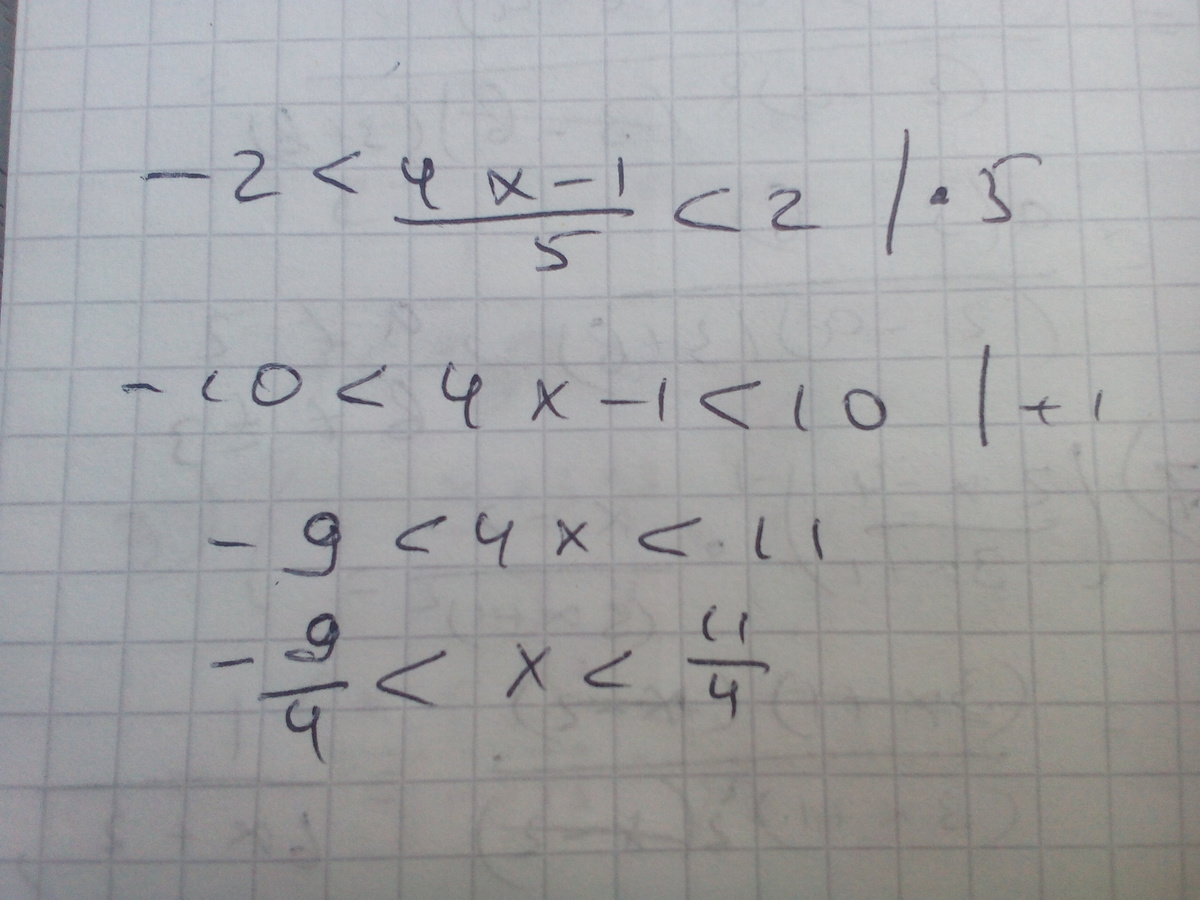 -2 < (4x-1)/5 < 2 | · 5
-10 < 4x-1 < 10 | +1
-9 < 4x < 11
-9/4 < x < 11/4